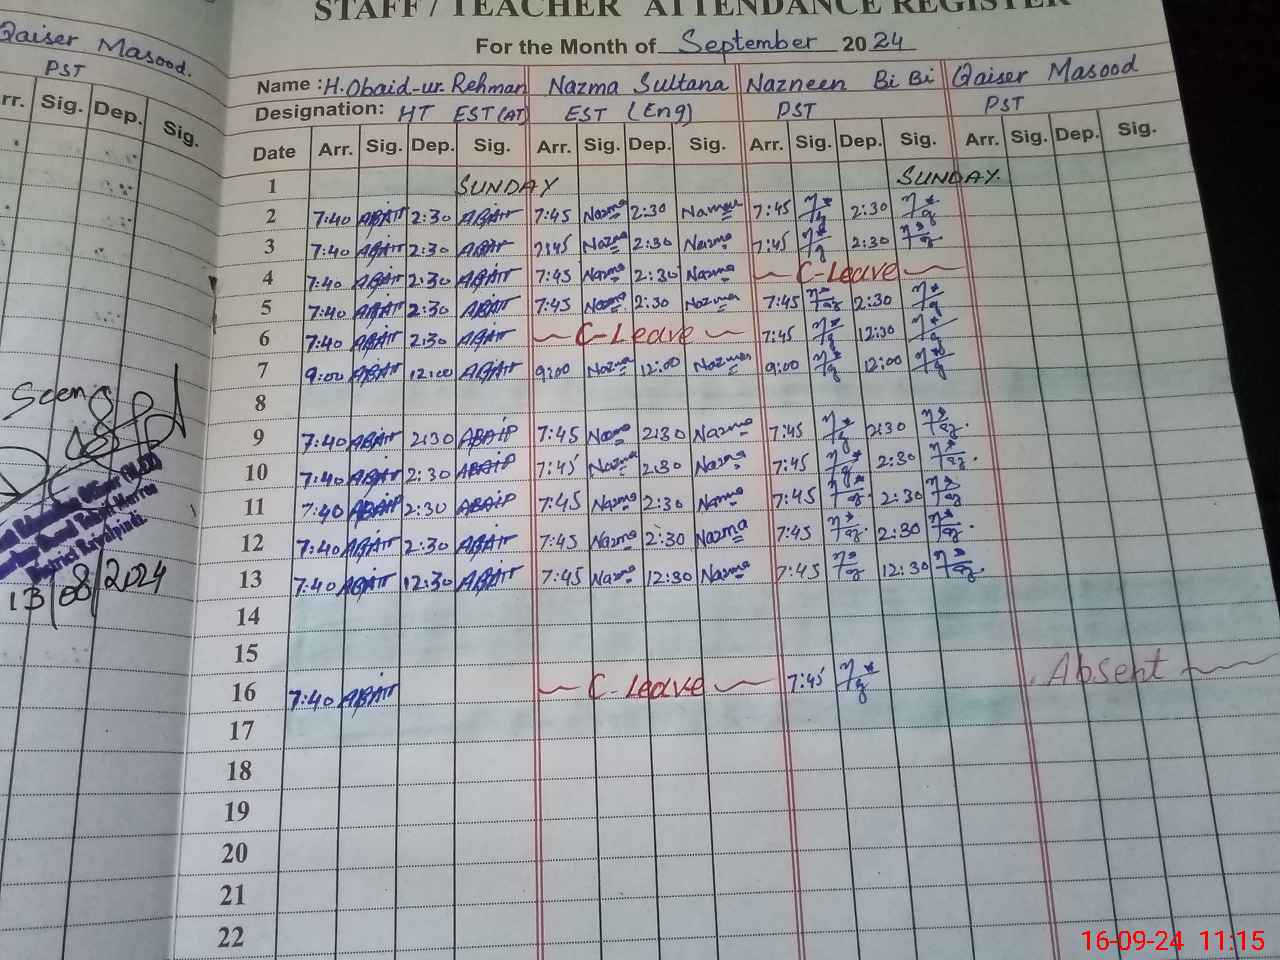 STAFF / TEACHER ATTENDANCE REGISTER
For the Month of September 2024
Qaiser Masood.
PST
Arr. Sig. Dep. Sig.
Seen
District Rawalpindi.
13/08/2024
Name : H. Obaid-ur-Rehman Nazma Sultana Nazneen Bi Bi Qaiser Masood
Designation: HT EST (AT) EST (Eng) PST PST
Date Arr. Sig. Dep. Sig. Arr. Sig. Dep. Sig. Arr. Sig. Dep. Sig. Arr. Sig. Dep. Sig.
1 SUNDAY SUNDAY.
2 7:40 2:30 7:45 Nazma 2:30 Nazma 7:45 2:30
3 7:40 2:30 7:45 Nazma 2:30 Nazma 7:45 2:30
4 7:40 2:30 7:45 Nazma 2:30 Nazma C-Leave
5 7:40 2:30 7:45 Nazma 2:30 Nazma 7:45 2:30
6 7:40 2:30 C-Leave 7:45 12:30
7 9:00 12:00 9:00 Nazma 12:00 Nazma 9:00 12:00
8
9 7:40 2:30 7:45 Nazma 2:30 Nazma 7:45 2:30
10 7:40 2:30 7:45 Nazma 2:30 Nazma 7:45 2:30
11 7:40 2:30 7:45 Nazma 2:30 Nazma 7:45 2:30
12 7:40 2:30 7:45 Nazma 2:30 Nazma 7:45 2:30
13 7:40 12:30 7:45 Nazma 12:30 Nazma 7:45 12:30
14
15
16 7:40 C-Leave 7:45 Absent
17
18
19
20
21
22
16-09-24 11:15